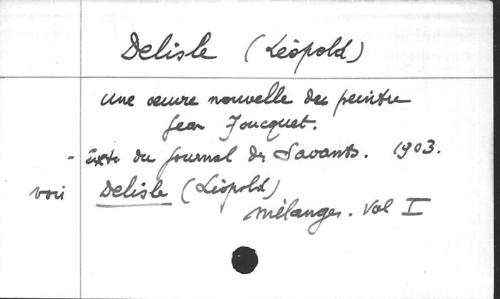 Delisle (Léopold)
une œuvre nouvelle du peintre
Jean Foucquet.
- Extr. du Journal des Savants. 1903.
voir Delisle (Léopold)
Mélanges. Vol I